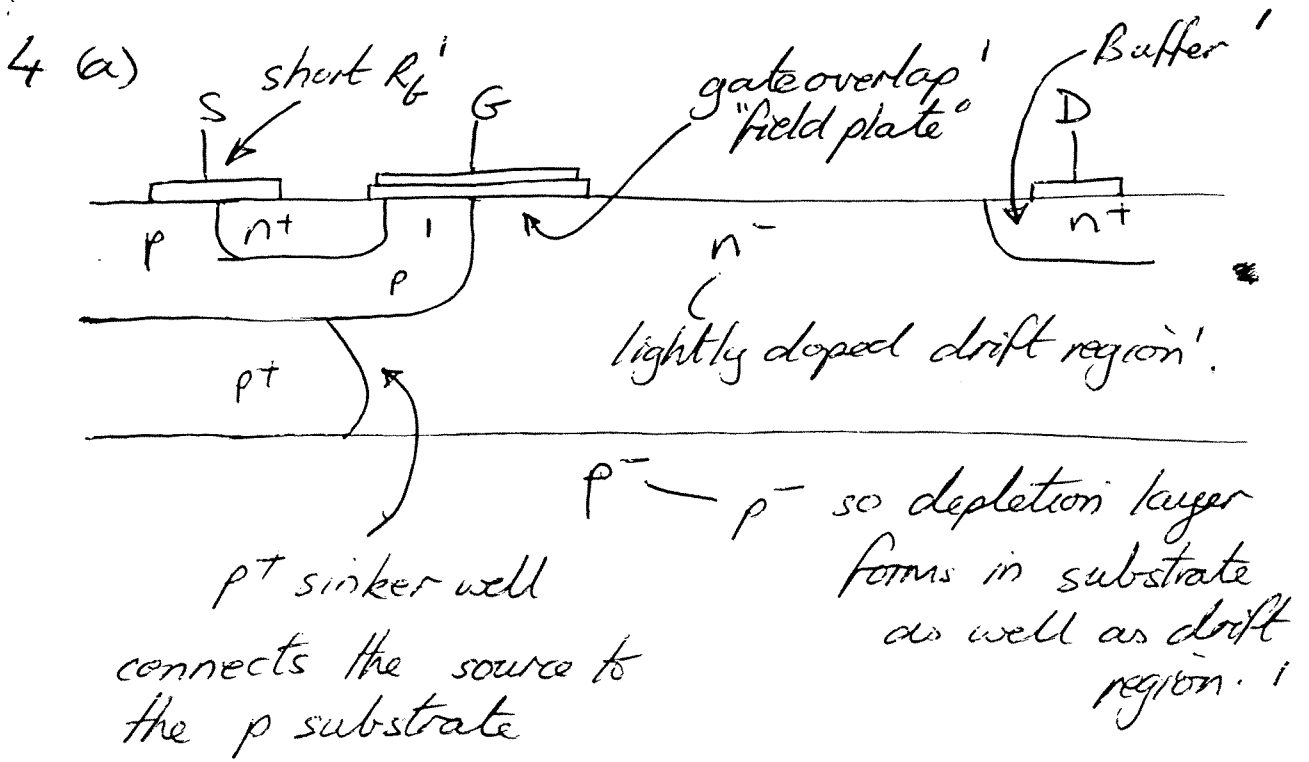 4 (a)
short R_b'
S
G
gate overlap'
"field plate"
Buffer'
D
p
n+
1
p
n-
n+
lightly doped drift region'.
p+
p- — p- so depletion layer
forms in substrate
as well as drift
region. 1
p+ sinker well
connects the source to
the p substrate